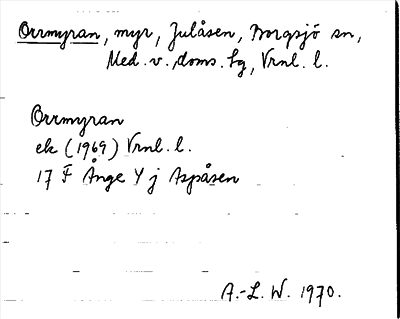 Orrmyran, myr, Julåsen, Borgsjö sn,
Med. v. doms. hg, Vrnl. l.
Orrmyran
ek (1969) Vrnl. l.
17 F Ånge Y j Aspåsen
A.-L. W. 1970.